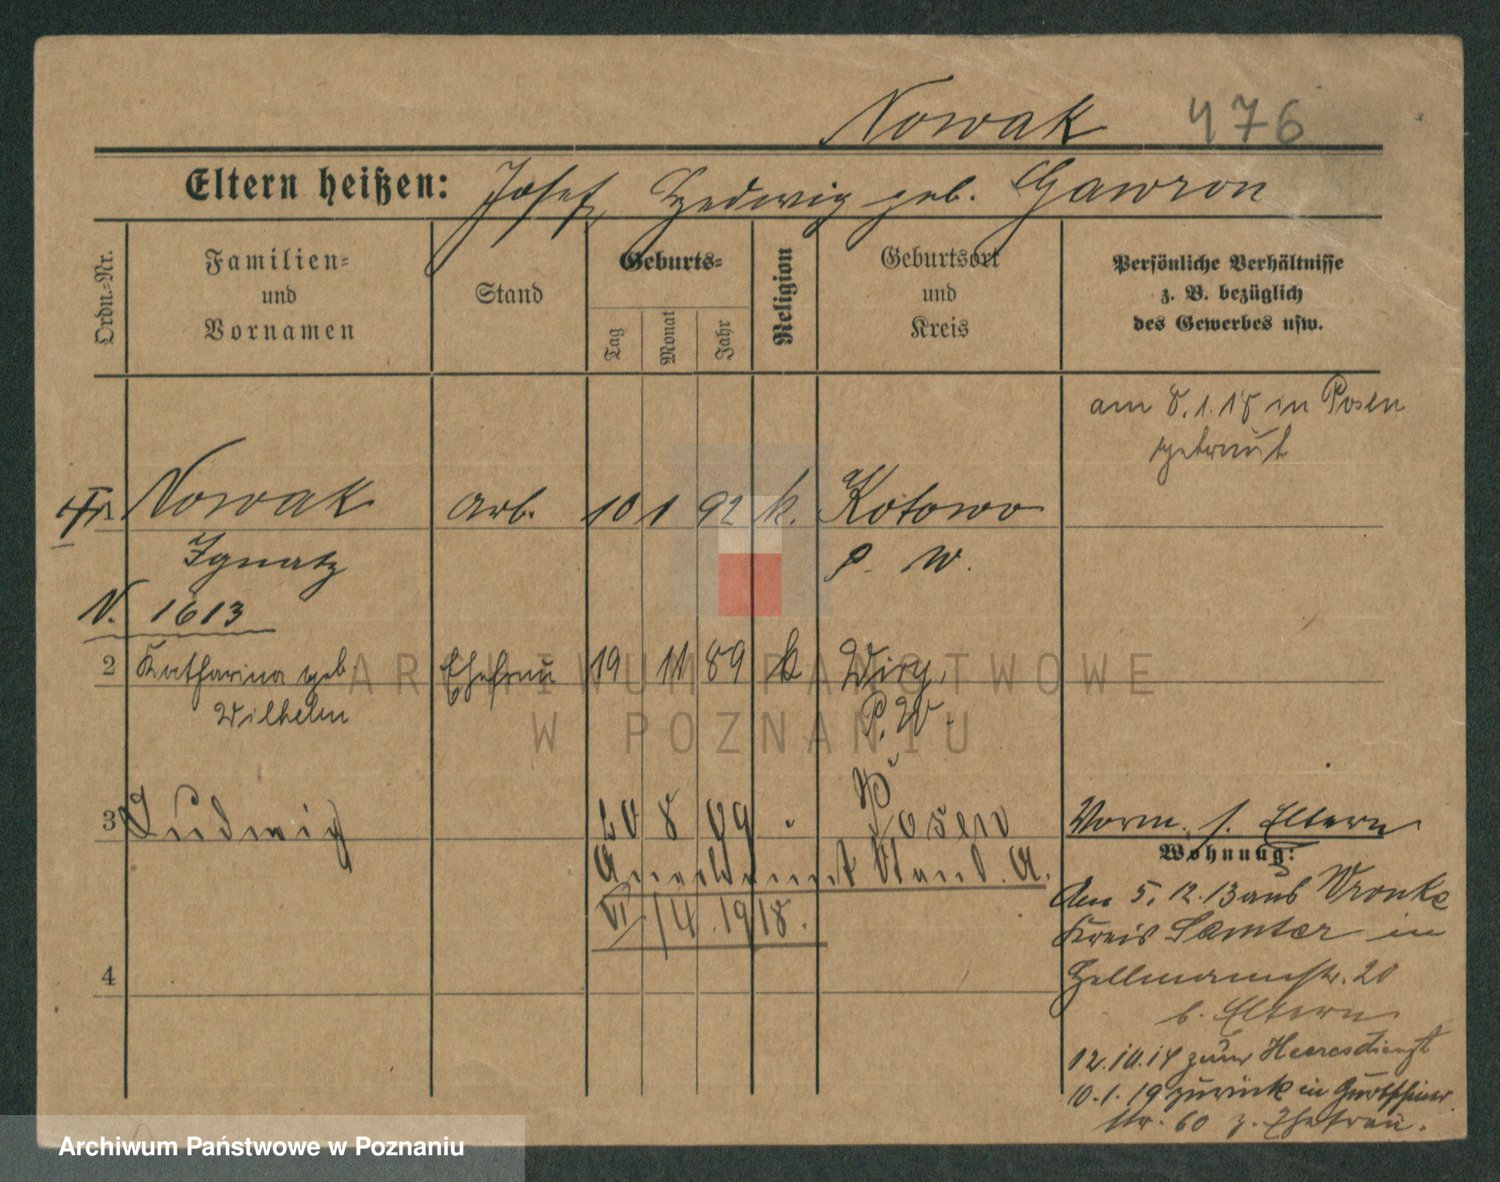 Nowak 476
Eltern heißen: Josef, Hedwig geb. Gawron
Ordn.-Nr.
Familien-
und
Vornamen
Stand
Geburts-
Tag
Monat
Jahr
Religion
Geburtsort
und
Kreis
Persönliche Verhältnisse
z. B. bezüglich
des Gewerbes usw.
am 8.1.18 in Posen
getraut
1 Nowak Arb. 10 1 92 k. Kotowo
Ignatz P. W.
N. 1613
2 Katharina geb. Ehefrau 19 11 89 k Wiry,
Wilhelm P. W.
3 Ludwig 20 8 09 " Posen
Vorm. s. Eltern
Wohnung:
Anerkannt Stand. A.
VI/14.1918.
Am 5.12.13 aus Wronke
Kreis Samter in
Hellmannstr. 20
b. Eltern
4
12.10.14 zum Heeresdienst
10.1.19 zurück in Gurtschiner
str. 60 z. Ehefrau.
ARCHIWUM PAŃSTWOWE
W POZNANIU
Archiwum Państwowe w Poznaniu